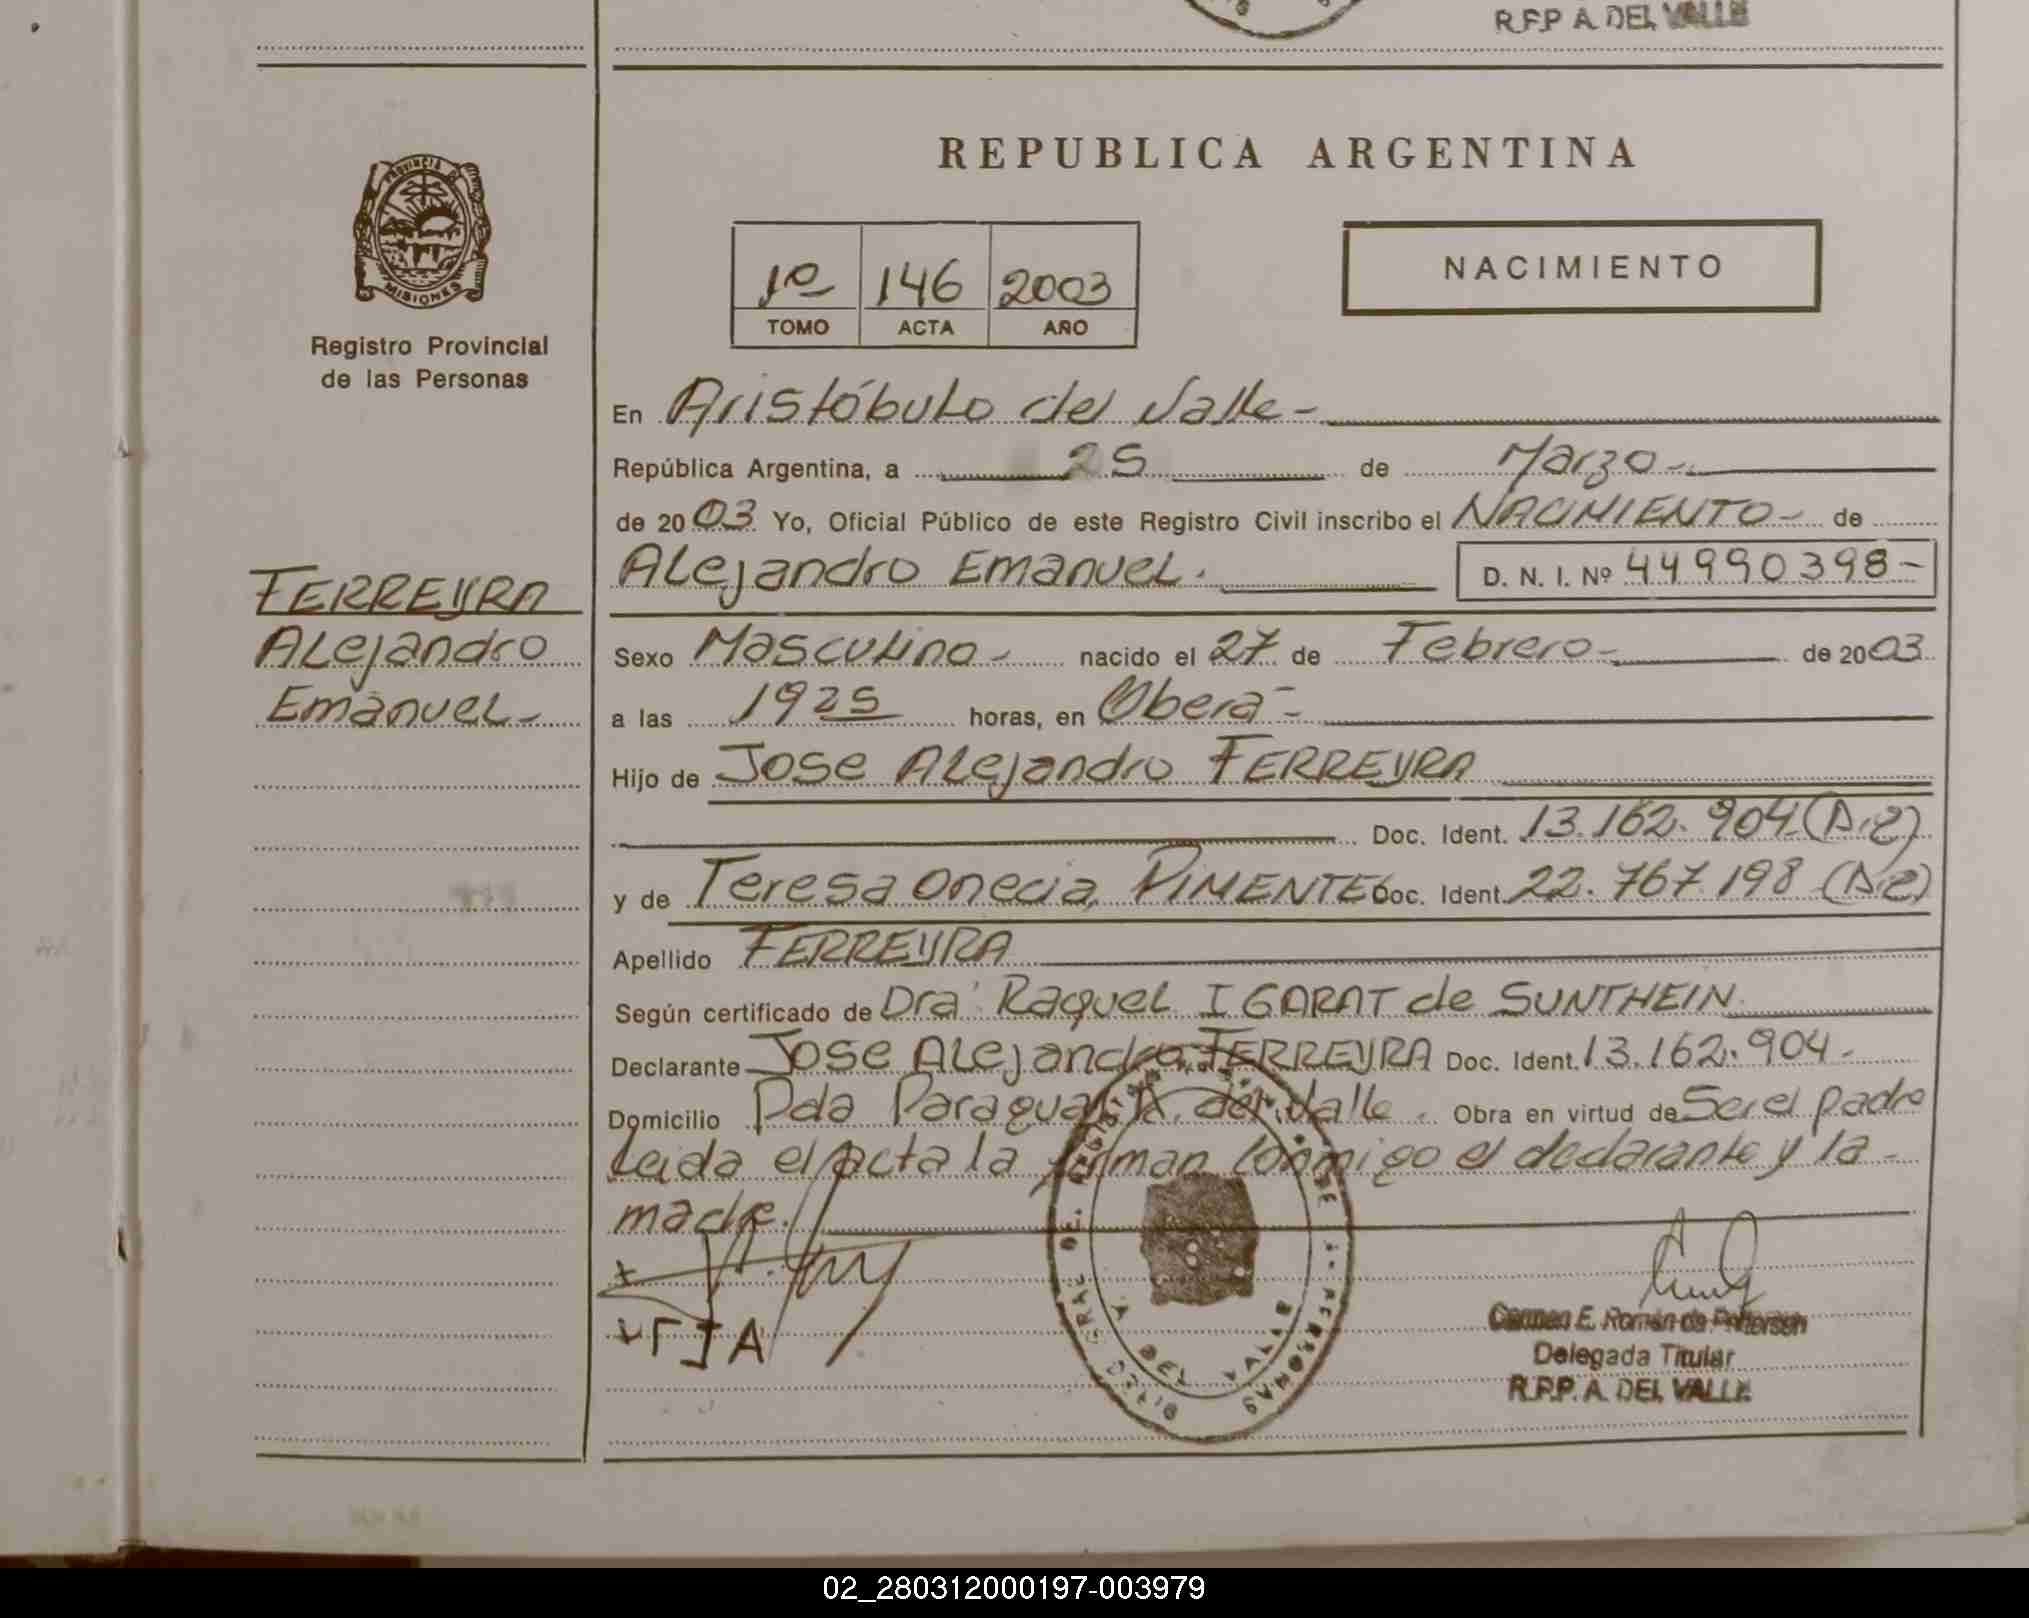 R.P.P. A. DEL VALLE
REPUBLICA ARGENTINA
PROVINCIA DE
MISIONES
Registro Provincial
de las Personas
1º 146 2003
TOMO ACTA AÑO
NACIMIENTO
En Aristóbulo del Valle -
República Argentina, a 25 de Marzo -
de 2003 Yo, Oficial Público de este Registro Civil inscribo el NACIMIENTO - de
Alejandro Emanuel. D. N. I. Nº 44990398 -
FERREYRA
Alejandro
Emanuel -
Sexo Masculino - nacido el 27 de Febrero - de 2003
a las 1925 horas, en Oberá -
Hijo de Jose Alejandro FERREYRA
Doc. Ident. 13.162.904
y de Teresa Onecia, PIMENTEL Doc. Ident. 22.767.198
Apellido FERREYRA
Según certificado de Dra. Raquel IGARAT de SUNTHEIN.
Declarante Jose Alejandro FERREYRA Doc. Ident. 13.162.904 -
Domicilio Pda Paraguay A. del Valle. Obra en virtud de Ser el padre
Leida el acta la firman conmigo el declarante y la -
madre.
Carmen E. Román de
Delegada Titular
R.P.P. A. DEL VALLE
02_280312000197-003979